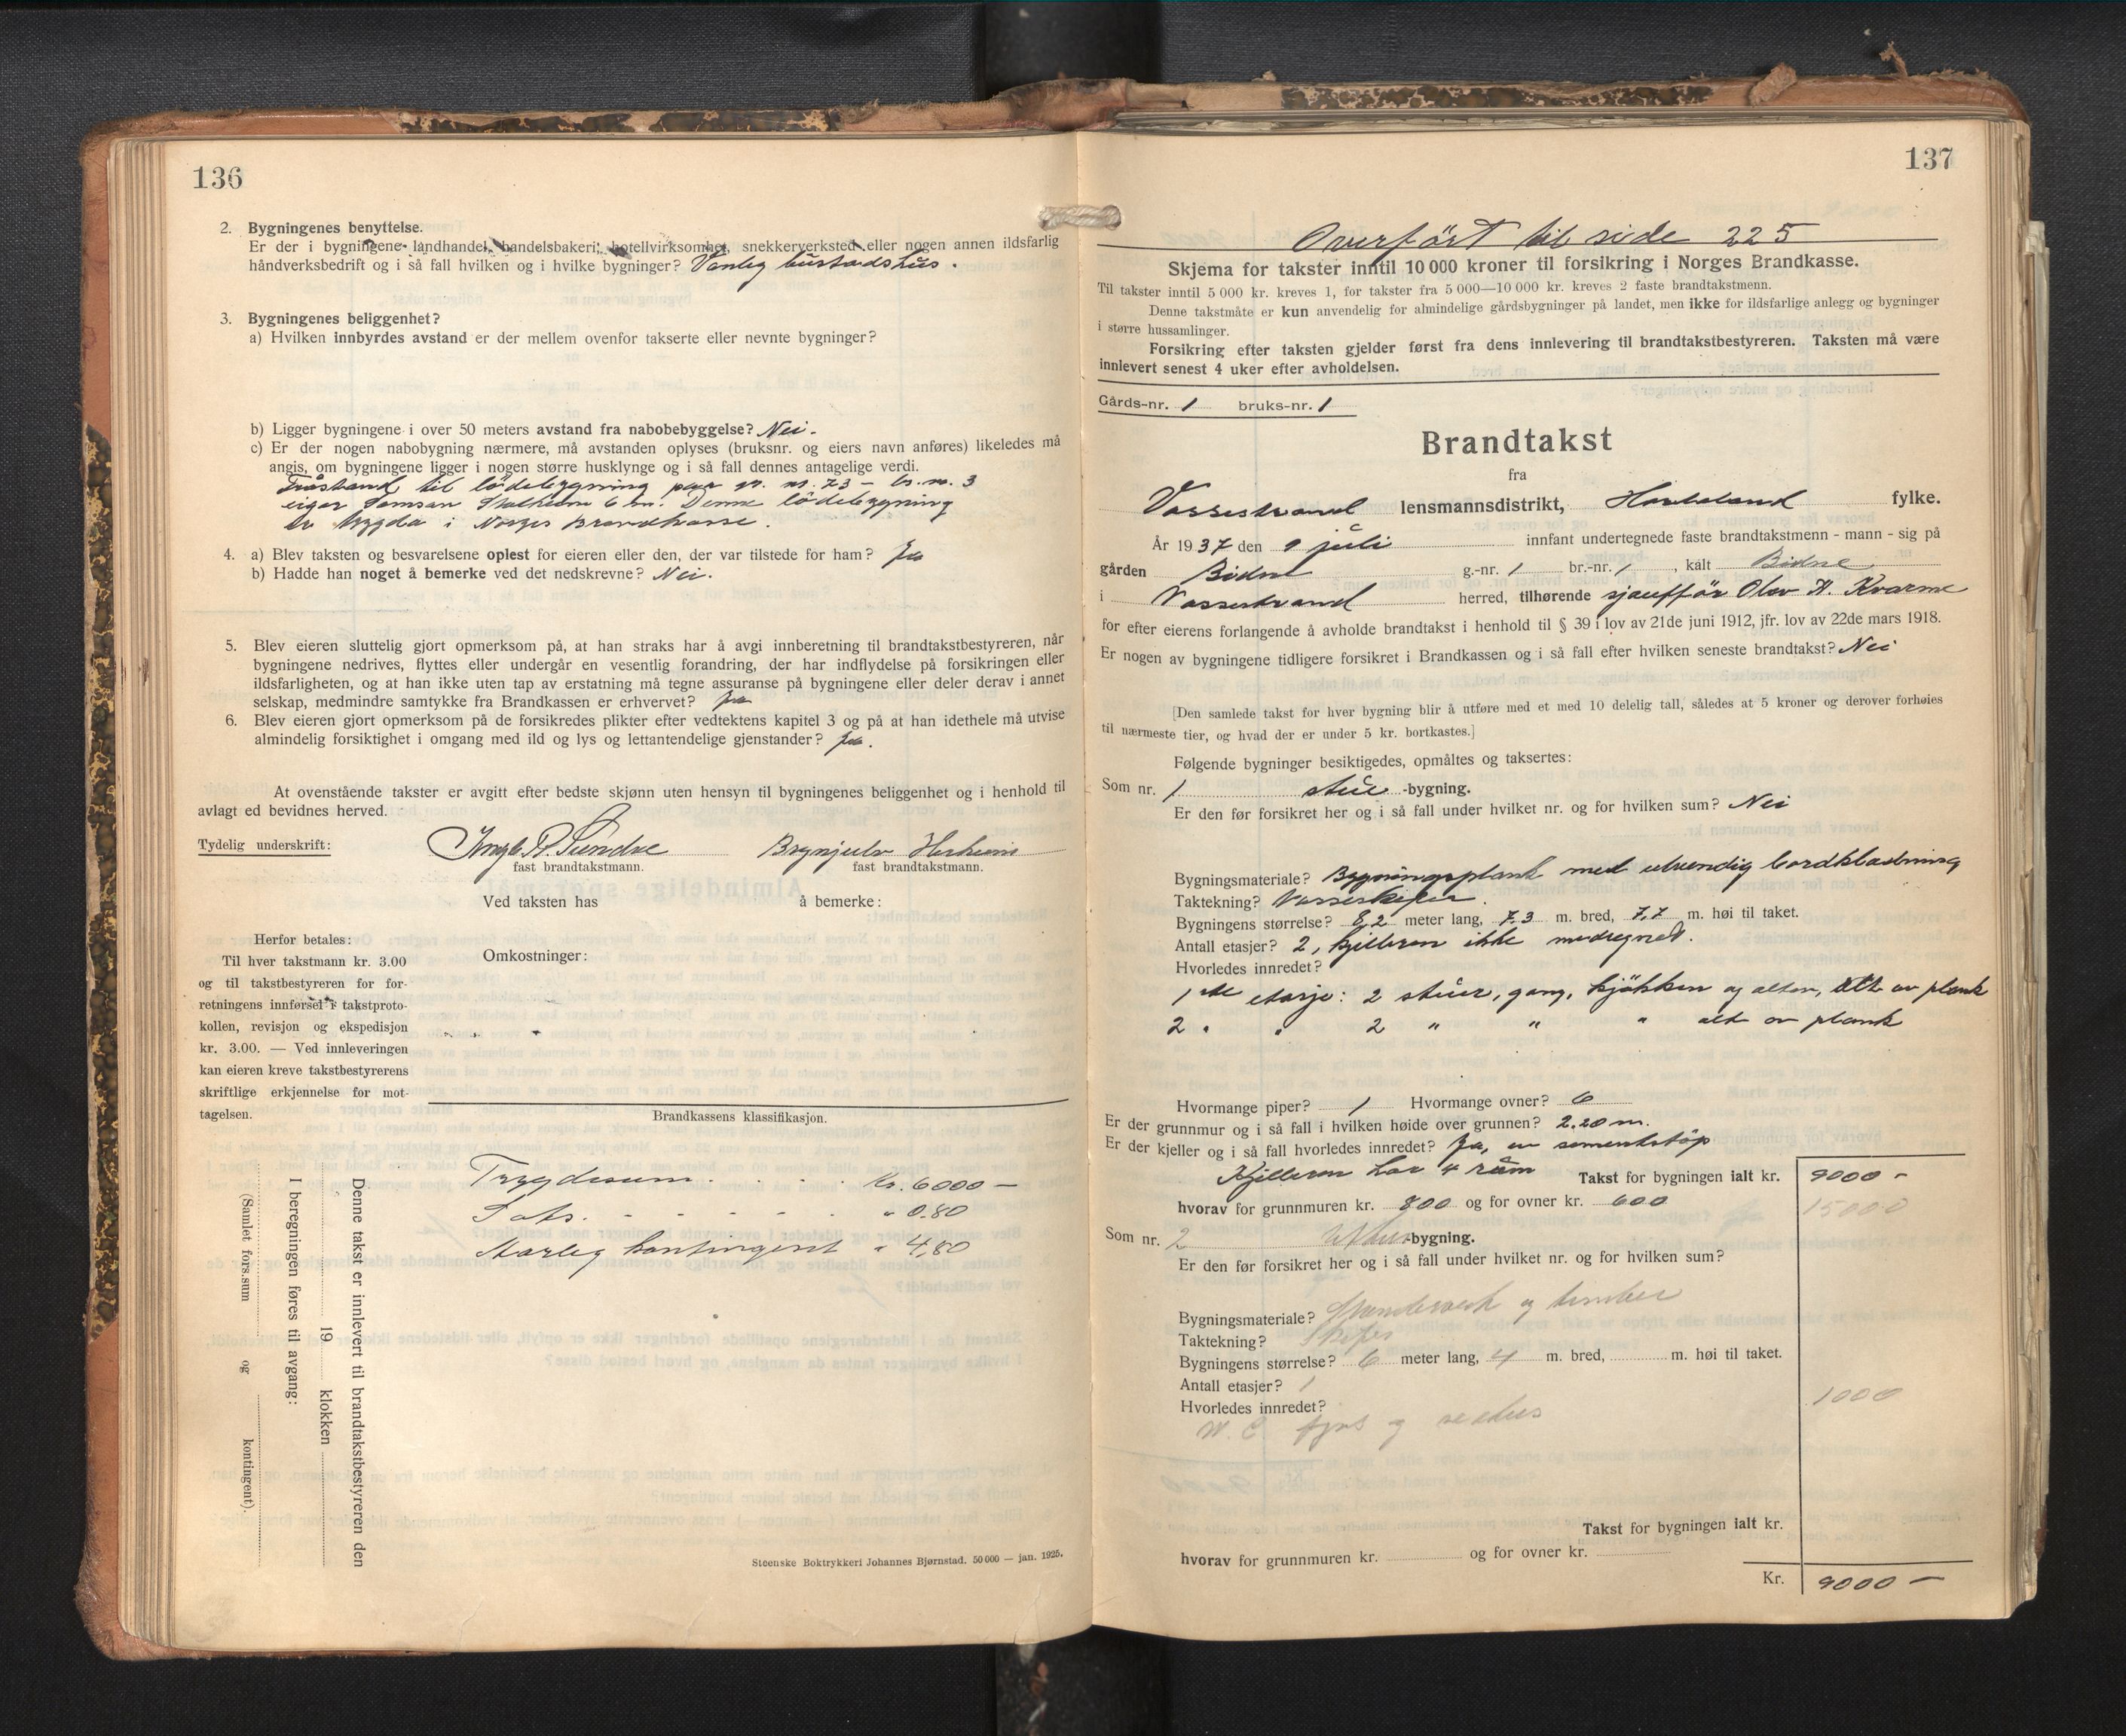 136
2. Bygningenes benyttelse.
Er der i bygningene landhandel, handelsbakeri, hotellvirksomhet, snekkerverksted eller nogen annen ildsfarlig
håndverksbedrift og i så fall hvilken og i hvilke bygninger? Vanleg bustadshus.
3. Bygningenes beliggenhet?
a) Hvilken innbyrdes avstand er der mellem ovenfor takserte eller nevnte bygninger?
b) Ligger bygningene i over 50 meters avstand fra nabobebyggelse? Nei.
c) Er der nogen nabobygning nærmere, må avstanden oplyses (bruksnr. og eiers navn anføres) likeledes må
angis, om bygningene ligger i nogen større husklynge og i så fall dennes antagelige verdi.
Fråstand til lödebygning paa gr. nr. 73 - br. nr. 3
eigar Samson Stalheim 6 m. Denne lödebygning
er trygda i Norges Brandkasse.
4. a) Blev taksten og besvarelsene oplest for eieren eller den, der var tilstede for ham? Ja
b) Hadde han noget å bemerke ved det nedskrevne? Nei.
5. Blev eieren sluttelig gjort opmerksom på, at han straks har å avgi innberetning til brandtakstbestyreren, når
bygningene nedrives, flyttes eller undergår en vesentlig forandring, der har indflydelse på forsikringen eller
ildsfarligheten, og at han ikke uten tap av erstatning må tegne assuranse på bygningene eller deler derav i annet
selskap, medmindre samtykke fra Brandkassen er erhvervet? Ja
6. Blev eieren gjort opmerksom på de forsikredes plikter efter vedtektens kapitel 3 og på at han idethele må utvise
almindelig forsiktighet i omgang med ild og lys og lettantendelige gjenstander? Ja.
At ovenstående takster er avgitt efter bedste skjønn uten hensyn til bygningenes beliggenhet og i henhold til
avlagt ed bevidnes herved.
Tydelig underskrift: P. Sundve Brynjulv
fast brandtakstmann. fast brandtakstmann.
Ved taksten has å bemerke:
Herfor betales:
Til hver takstmann kr. 3.00
og til takstbestyreren for for-
retningens innførsel i takstproto-
kollen, revisjon og ekspedisjon
kr. 3.00. — Ved innleveringen
kan eieren kreve takstbestyrerens
skriftlige erkjennelse for mot-
tagelsen.
Omkostninger:
Brandkassens klassifikasjon.
Trygdesum . . . . Kr. 6000 —
Sats. - - - - - " 0.80
Aarleg kontingent " 4,80
Denne takst er innlevert til brandtakstbestyreren den
19 klokken
I beregningen føres til avgang:
(Samlet fors.sum og kontingent).
Steenske Boktrykkeri Johannes Bjørnstad. 50 000 — jan. 1925.
137
Overfört til side 225
Skjema for takster inntil 10 000 kroner til forsikring i Norges Brandkasse.
Til takster inntil 5 000 kr. kreves 1, for takster fra 5 000—10 000 kr. kreves 2 faste brandtakstmenn.
Denne takstmåte er kun anvendelig for almindelige gårdsbygninger på landet, men ikke for ildsfarlige anlegg og bygninger
i større hussamlinger.
Forsikring efter taksten gjelder først fra dens innlevering til brandtakstbestyreren. Taksten må være
innlevert senest 4 uker efter avholdelsen.
Gårds-nr. 1 bruks-nr. 1
Brandtakst
fra
Vossestrand lensmannsdistrikt, Hordaland fylke.
År 1937 den 9 juli innfant undertegnede faste brandtakstmenn - mann - sig på
gården Bidne g.-nr. 1 br.-nr. 1, kalt Bidne
i Vossestrand herred, tilhørende sjaufför Olav K. Kvarme
for efter eierens forlangende å avholde brandtakst i henhold til § 39 i lov av 21de juni 1912, jfr. lov av 22de mars 1918.
Er nogen av bygningene tidligere forsikret i Brandkassen og i så fall efter hvilken seneste brandtakst? Nei
[Den samlede takst for hver bygning blir å utføre med et med 10 delelig tall, således at 5 kroner og derover forhøies
til nærmeste tier, og hvad der er under 5 kr. bortkastes.]
Følgende bygninger besiktigedes, opmåltes og taksertes:
Som nr. 1 stue -bygning.
Er den før forsikret her og i så fall under hvilket nr. og for hvilken sum? Nei
Bygningsmateriale? Bygningsplank med utvendig bordklædning
Taktekning? Vosseskifer.
Bygningens størrelse? 8,2 meter lang, 7,3 m. bred, 7,7 m. høi til taket.
Antall etasjer? 2, kjelleren ikke medregned.
Hvorledes innredet?
1ste etasje: 2 stuer, gang, kjökken og altan, alt av plank
2 " " 2 " " " alt av plank
Hvormange piper? 1 Hvormange ovner? 6
Er der grunnmur og i så fall i hvilken høide over grunnen? 2.20 m.
Er der kjeller og i så fall hvorledes innredet? Ja, av sementstöp
Kjelleren har 4 rum Takst for bygningen ialt kr. 9000 -
hvorav for grunnmuren kr. 800 og for ovner kr. 600 15000
Som nr. 2 Uthus-bygning.
Er den før forsikret her og i så fall under hvilket nr. og for hvilken sum?
Bygningsmateriale? og timber
Taktekning? Skifer
Bygningens størrelse? 6 meter lang, 4 m. bred, m. høi til taket.
Antall etasjer? 1
Hvorledes innredet? 1000
W. C. fjos og vedhus
Takst for bygningen ialt kr.
hvorav for grunnmuren kr. og for ovner kr.
Kr. 9000 —